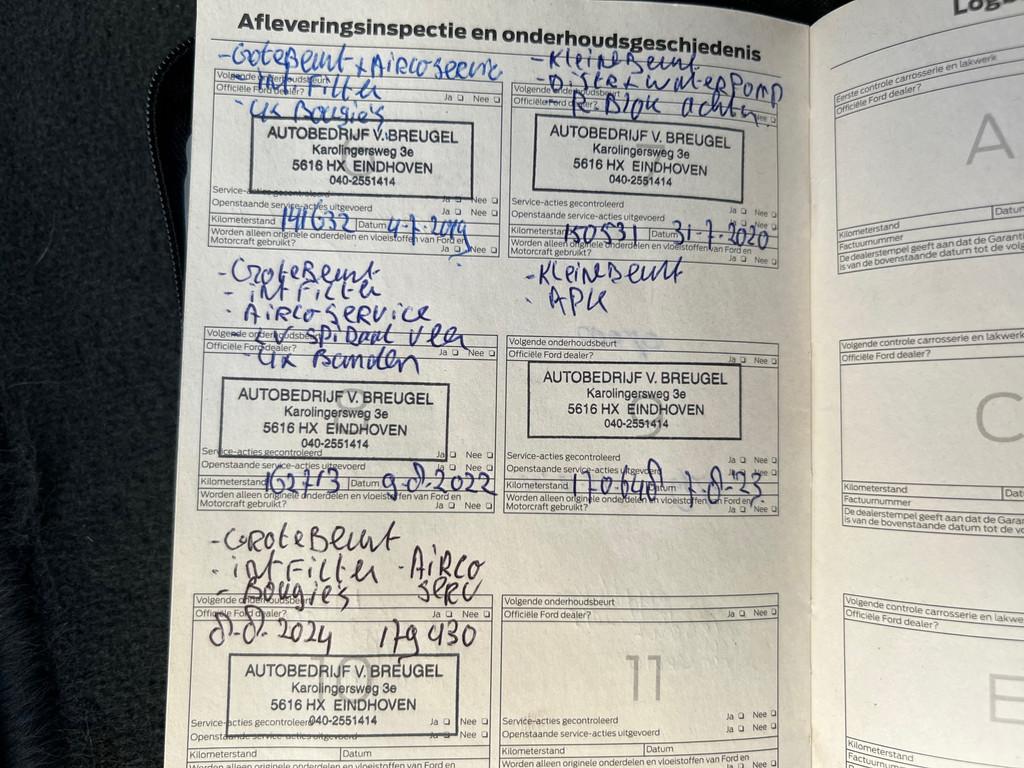 Afleveringsinspectie en onderhoudsgeschiedenis
-GroteBeurt + AircoService
Volgende onderhoudsbeurt
- intFilter
Officiële Ford dealer? Ja Nee
- 4x Bougie's
AUTOBEDRIJF V. BREUGEL
Karolingersweg 3e
5616 HX EINDHOVEN
040-2551414
Service-acties gecontroleerd Ja Nee
Openstaande service-acties uitgevoerd Ja Nee
Kilometerstand 141632 Datum 4-7-2019
Worden alleen originele onderdelen en vloeistoffen van Ford en
Motorcraft gebruikt? Ja Nee
-KleineBeurt
-Distr + waterpomp
Volgende onderhoudsbeurt
Officiële Ford dealer? Nee
R Blok achter
AUTOBEDRIJF V. BREUGEL
Karolingersweg 3e
5616 HX EINDHOVEN
040-2551414
Service-acties gecontroleerd Ja Nee
Openstaande service-acties uitgevoerd Ja Nee
Kilometerstand 150531 Datum 31-7-2020
Worden alleen originele onderdelen en vloeistoffen van Ford en
Motorcraft gebruikt? Ja Nee
-GroteBeurt
- intFilter
- AircoService
LV spiraal veer
Volgende onderhoudsbeurt
Officiële Ford dealer? Ja Nee
- 4x Banden
8
AUTOBEDRIJF V. BREUGEL
Karolingersweg 3e
5616 HX EINDHOVEN
040-2551414
Service-acties gecontroleerd Ja Nee
Openstaande service-acties uitgevoerd Ja Nee
Kilometerstand 162713 Datum 9-8-2022
Worden alleen originele onderdelen en vloeistoffen van Ford en
Motorcraft gebruikt? Ja Nee
-KleineBeurt
- APK
Volgende onderhoudsbeurt
Officiële Ford dealer? Ja Nee
9
AUTOBEDRIJF V. BREUGEL
Karolingersweg 3e
5616 HX EINDHOVEN
040-2551414
Service-acties gecontroleerd Ja Nee
Openstaande service-acties uitgevoerd Ja Nee
Kilometerstand 170.640 Datum 7-8-'23
Worden alleen originele onderdelen en vloeistoffen van Ford en
Motorcraft gebruikt? Ja Nee
-GroteBeurt
- intFilter - Airco
- Bougie's serv
Volgende onderhoudsbeurt
Officiële Ford dealer? Ja Nee
8-8-2024 179430
10
AUTOBEDRIJF V. BREUGEL
Karolingersweg 3e
5616 HX EINDHOVEN
040-2551414
Service-acties gecontroleerd Ja Nee
Openstaande service-acties uitgevoerd Ja Nee
Kilometerstand Datum
Worden alleen originele onderdelen en vloeistoffen van Ford en
Volgende onderhoudsbeurt
Officiële Ford dealer? Ja Nee
11
Service-acties gecontroleerd Ja Nee
Openstaande service-acties uitgevoerd Ja Nee
Kilometerstand Datum
Worden alleen originele onderdelen en vloeistoffen van Ford en
Eerste controle carrosserie en lakwerk
Officiële Ford dealer?
A
Kilometerstand Datum
Factuurnummer
De dealerstempel geeft aan dat de
is van de bovenstaande datum tot de
Volgende controle carrosserie en lakwerk
Officiële Ford dealer?
C
Kilometerstand
Factuurnummer
De dealerstempel geeft aan dat de
is van de bovenstaande datum tot de
Volgende controle carrosserie en
Officiële Ford dealer?
E
Kilometerstand
Factuurnummer